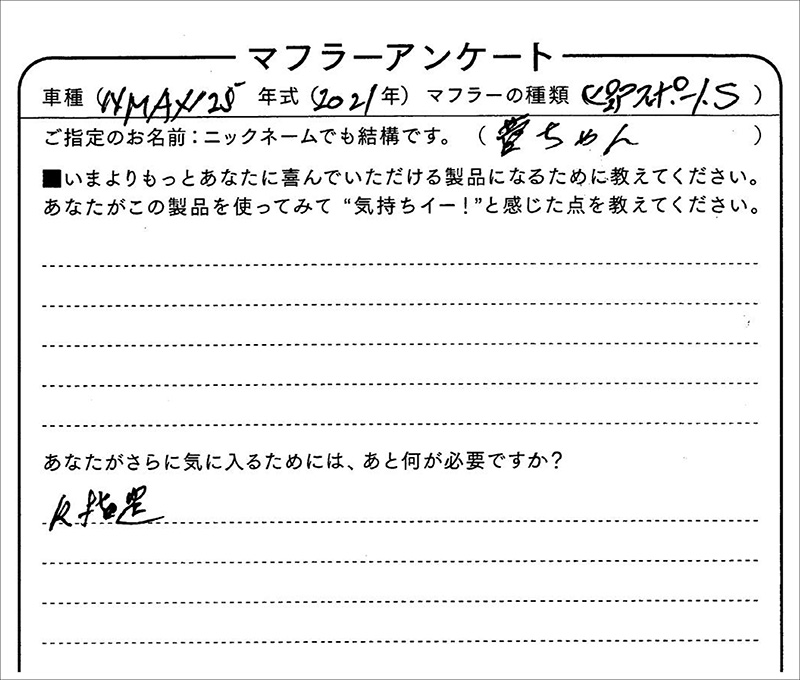 マフラーアンケート
車種（NMAX125 年式（2021年）マフラーの種類（ スポーツS ）
ご指定のお名前：ニックネームでも結構です。（ 菅ちゃん ）
■いまよりもっとあなたに喜んでいただける製品になるために教えてください。
あなたがこの製品を使ってみて“気持ちイー！”と感じた点を教えてください。
あなたがさらに気に入るためには、あと何が必要ですか？